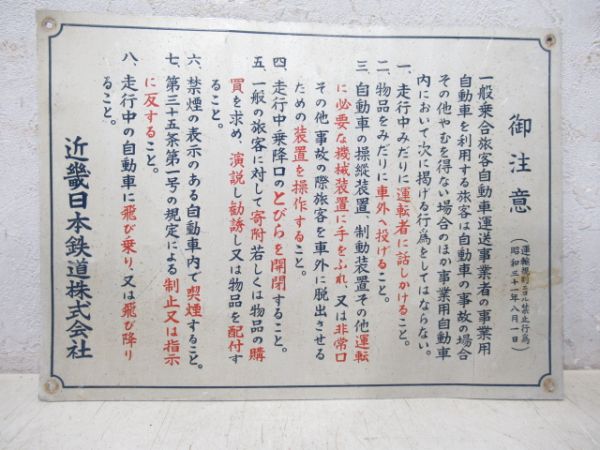 御注意
（運輸規則による禁止行為
昭和三十一年八月一日）
一般乗合旅客自動車運送事業者の事業用
自動車を利用する旅客は自動車の事故の場合
その他やむを得ない場合のほか事業用自動車
内において次に掲げる行為をしてはならない。
一、走行中みだりに運転者に話しかけること。
二、物品をみだりに車外へ投げること。
三、自動車の操縦装置、制動装置その他運転
に必要な機械装置に手をふれ、又は非常口
その他事故の際旅客を車外に脱出させる
ための装置を操作すること。
四、走行中乗降口のとびらを開閉すること。
五、一般の旅客に対して寄附若しくは物品の購
買を求め、演説し勧誘し又は物品を配付す
ること。
六、禁煙の表示のある自動車内で喫煙すること。
七、第三十五条第一号の規定による制止又は指示
に反すること。
八、走行中の自動車に飛び乗り、又は飛び降り
ること。
近畿日本鉄道株式会社